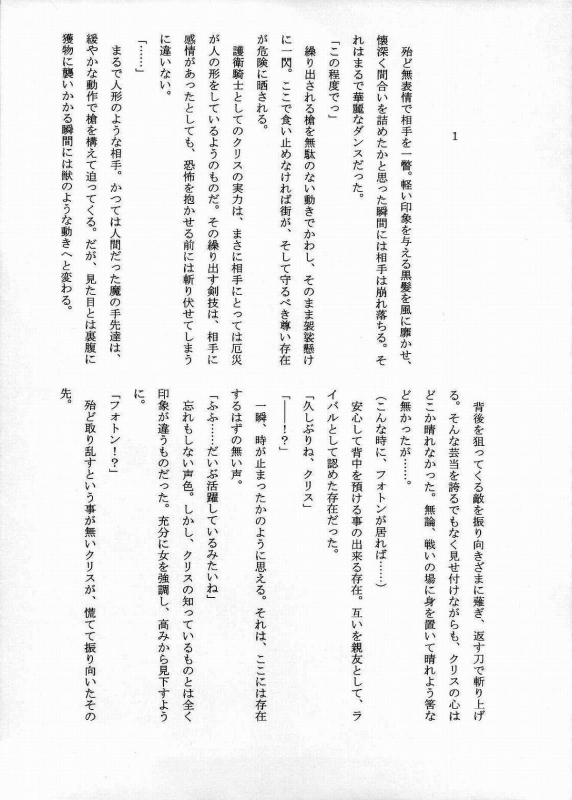 1
殆ど無表情で相手を一瞥。軽い印象を与える黒髪を風に靡かせ、
懐深く間合いを詰めたかと思った瞬間には相手は崩れ落ちる。そ
れはまるで華麗なダンスだった。
「この程度でっ」
繰り出される槍を無駄のない動きでかわし、そのまま袈裟懸け
に一閃。ここで食い止めなければ街が、そして守るべき尊い存在
が危険に晒される。
護衛騎士としてのクリスの実力は、まさに相手にとっては厄災
が人の形をしているようのものだ。その繰り出す剣技は、相手に
感情があったとしても、恐怖を抱かせる前には斬り伏せてしまう
に違いない。
「……」
まるで人形のような相手。かつては人間だった魔の手先達は、
緩やかな動作で槍を構えて迫ってくる。だが、見た目とは裏腹に
獲物に襲いかかる瞬間には獣のような動きへと変わる。
背後を狙ってくる敵を振り向きざまに薙ぎ、返す刀で斬り上げ
る。そんな芸当を誇るでもなく見せ付けながらも、クリスの心は
どこか晴れなかった。無論、戦いの場に身を置いて晴れよう筈な
ど無かったが……。
(こんな時に、フォトンが居れば……)
安心して背中を預ける事の出来る存在。互いを親友として、ラ
イバルとして認めた存在だった。
「久しぶりね、クリス」
「――！？」
一瞬、時が止まったかのように思える。それは、ここには存在
するはずの無い声。
「ふふ……だいぶ活躍しているみたいね」
忘れもしない声色。しかし、クリスの知っているものとは全く
印象が違うものだった。充分に女を強調し、高みから見下すよう
に。
「フォトン！？」
殆ど取り乱すという事が無いクリスが、慌てて振り向いたその
先。